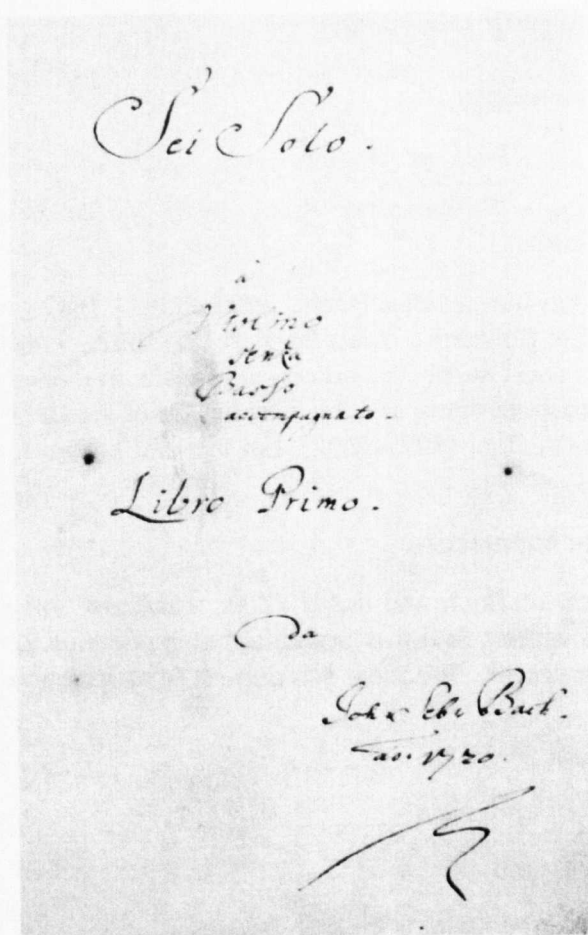 Sei Solo.
à
Violino
senza
Basso
accompagnato.
Libro Primo.
Da
Joh. Seb. Bach.
ao. 1720.